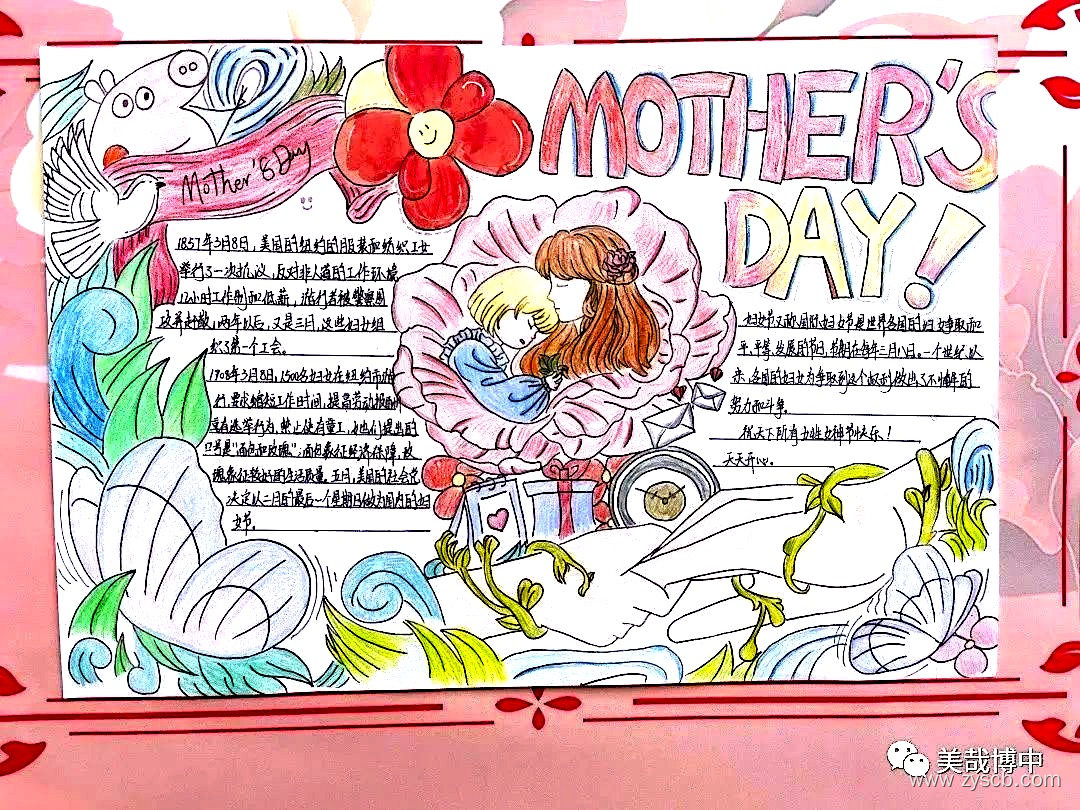 MOTHER'S
DAY!
Mother's Day
1857年3月8日,美国的纽约的服装和纺织工女
举行了一次抗议,反对非人道的工作环境
12小时工作制和低薪,游行者被警察围
攻并赶散,两年以后,又是三月,这些妇女组
织了第一个工会。
1908年3月8日,1500名妇女在纽约市游
行,要求缩短工作时间,提高劳动报酬
享有选举行为,禁止使有童工,她们提出的
口号是“面包和玫瑰”,面包象征经济保障,玫
瑰象征较好的生活质量。五月,美国的社会党
决定以二月的最后一个星期日做为国内的妇
女节。
妇女节又称国际妇女节是世界各国的妇女争取和
平、平等、发展的节日,节期在每年三月八日。一个世纪以
来,各国的妇女为争取到这个权利做出了不懈的
努力和斗争。
祝天下所有女性女神节快乐!
天天开心。
美哉博中
www.zyscb.com